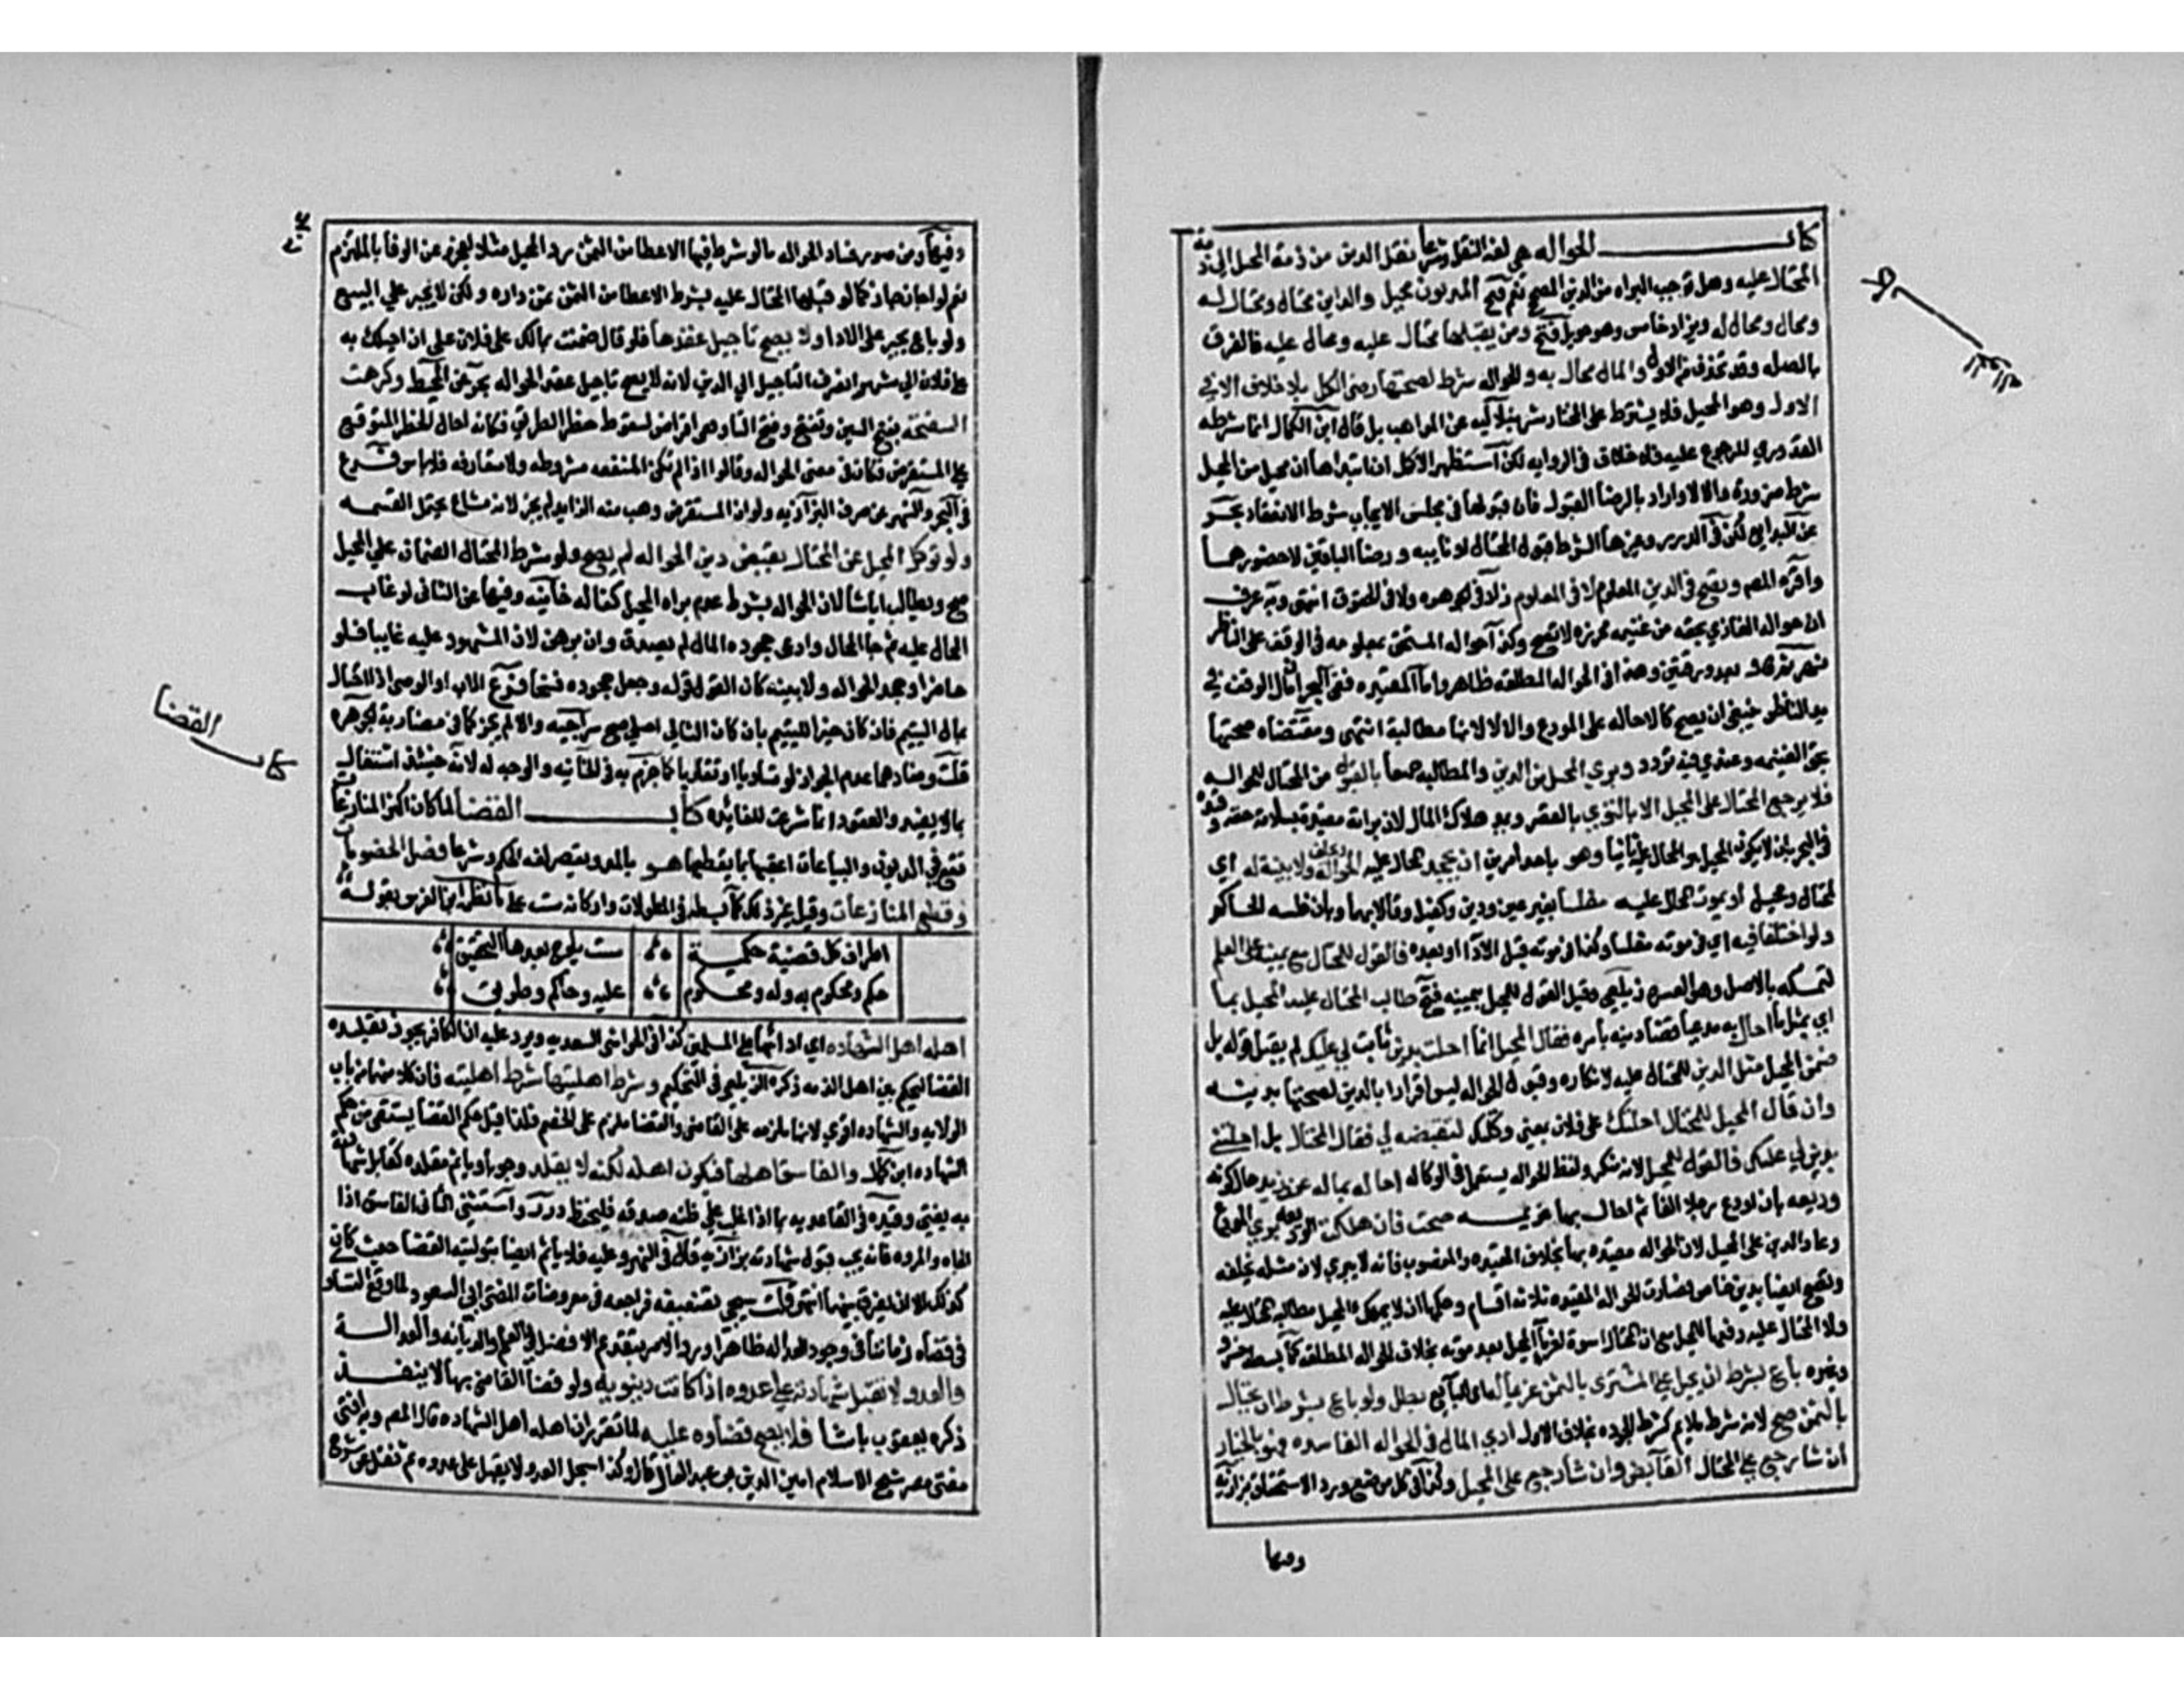 كتاب الحواله هي لغة النقل وشرعا نقل الدين من ذمة المحيل الى ذمة
المحتال عليه وهل توجب البراه من الدين المصح نعم فتح المديون محيل والداين محتال ومحتال له
ومحال ومحال له ويزاد خامس وهو حويل فتح ومن يقبلها محتال عليه ومحال عليه فالفرق
بالصله وقد تحذف من الاول والمال محال به والحواله شرط لصحتها رضى الكل بلا خلاف الا في
الاول وهو المحيل فلا يشترط على المختار شرنبلاليه عن المواهب بل قال ابن الكمال انما شرطه
القدوري للرجوع عليه فلا خلاف في الروايه لكن استظهر الاكمل ان ابتداها ان من المحيل
شرط ضرورة والا لا واراد بالرضا القبول فان قبولها في مجلس الايجاب شرط الانعقاد بحر
عن البدايع لكن في الدرر وغيرها الشرط قبول المحتال او نايبه ورضا الباقين لا حضورهما
واقره المصم وتصح في الدين المعلوم لا في العين زاد في الجوهره ولا في الحقوق انتهى وبه عرف
ان حواله الغازي بحقه من غنيمه محرزه لا تصح وكذا حواله المستحق بمعلومه في الوقف على الناظر
نهر وهذا في الحواله المطلقه ظاهر واما المقيده ففي البحر ان مال الوقف في
يد الناظر ينبغي ان يصح كالاحاله على المودع والا لا لانها مطالبة انتهى ومقتضاه صحتها
بحق الغنيمه وعندي فيه تردد وبري المحيل من الدين والمطالبه جميعا بالقبول من المحتال للحواله
فلا يرجع المحتال على المحيل الا بالتوي بالقصر ويمد هلاك المال لان براته مقيدة بسلامة حقه وقيده
في البحر بان لا يكون المحيل هو المحال عليه ثانيا وهو باحد امرين ان يجحد المحال عليه الحواله ويحلف ولا بينة له اي
لمحتال ومحيل او يموت المحال عليه مفلسا بغير عين ودين وكفيل وقالا بهما وبان فلسه الحاكم
ولو اختلفا فيه اي في موته مفلسا وكذا في موته قبل الادا او بعده فالقول للمحتال مع يمينه على العلم
لتمسكه بالاصل وهو العسره زيلعي وقيل القول للمحيل بيمينه فتح طالب المحتال عليه المحيل بما
اي بمثل ما احال به مدعيا قضا دينه بامره فقال المحيل انما احلت بدين ثابت لي عليك لم يقبل قوله بل
ضمن المحيل مثل الدين للمحتال عليه لانكاره وقبول الحواله ليس اقرارا بالدين لصحتها بدونه
وان قال المحيل للمحتال احلتك على فلان بمعنى وكلتك لتقبضه لي فقال المحتال بل احلتني
بدين لي عليك فالقول للمحيل لانه منكر ولفظ الحواله يستعمل في الوكاله احاله بماله عند زيد حال كونه
وديعه بان اودع رجلا الفا ثم احال بها غريمه صحت فان هلكت الوديعه بري المودع
وعاد الدين على المحيل لان الحواله مقيده بها بخلاف المقيده بالمغصوب فانه لا يبري لان مثله يخلفه
وتصح ايضا بدين خاص فصارت الحواله المقيده ثلاثه اقسام وحكمها ان لا يملك المحيل مطالبه المحتال عليه
ولا المحتال عليه دفعها للمحيل مع ان المحتال اسوة لغرما المحيل بعد موته بخلاف الحواله المطلقه كما بسطه خسرو
وغيره باع بشرط ان يحيل على المشتري بالثمن غريما له اي للبايع بطل ولو باع بشرط ان يحتال
بالثمن صح لانه شرط ملايم كشرط الجوده بخلاف الاول ادي المال في الحواله الفاسده فهو بالخيار
ان شا رجع على المحتال القابض وان شا رجع على المحيل وكذا في كل موضع ورد الاستحقاق بزازية
وفيها
وفيها ومن صور فساد الحواله ما لو شرط فيها الاعطا من الثمن دار المحيل مثلا لعجزه عن الوفا بالملتزم
نعم لو اجاز جاز كما لو قبلها المحتال عليه بشرط الاعطا من الثمن ثمن داره ولكن لا يجبر علي البيع
ولو باع يجبر على الادا ولا يصح تاجيل عقدها فلو قال ضمنت بمالك على فلان على ان احيلك به
على فلان الى شهر انصرف التاجيل الي الدين لانه لا يصح تاجيل عقد الحواله بحر عن المحيط وكرهت
السفتجه بضم السين وتفتح وفتح التا وهو اقراض لسقوط خطر الطريق فكانه احال الخطر المتوقع
على المستقرض فكان في معنى الحواله وقالوا اذا لم تكن المنفعه مشروطه ولا متعارفه فلا باس فرع
في البحر والنهر عن صرف البزازيه ولو ان المستقرض وهب منه الزايد لم يجز لانه مشاع يحتمل القسمه
ولو توكل المحيل عن المحتال بقبض دين الحواله لم يصح ولو شرط المحتال الضمان علي المحيل
صح ويطالب ايا شا لان الحواله بشرط عدم براه المحيل كفاله خانيه وفيها عن الثاني لو غاب
المحال عليه ثم جا المحال وادعى جحوده المال لم يصدق وان برهن لان المشهود عليه غايبا فلو
حاضرا وجحد الحواله ولا بينه كان القول قوله وجعل جحوده فسخا فرع الاب او الوصي اذا احتال
بمال اليتيم فان كان خيرا لليتيم بان كان الثاني املى صح سراجيه والا لم يجز كما في مضاربة الجوهره
قلت ومفادهما عدم الجواز لو تساويا او تقاربا كما جزم به في الخانيه والوجه له لانه حينئذ اشتغال
بما لا يفيد والعقود انما شرعت للفايده كتاب القضا لما كان اكثر المنازعات
تقع في الديون والبياعات اعقبها بما يقطعها هو بالمد ويقصر لغة الحكم وشرعا فصل الخصومات
وقطع المنازعات وقيل غير ذلك كما بسط في المطولات واركانه ست على ما نظمه ابن الغرس بقوله
اطراف كل قضية حكمية ست يلوح بعدها التحقيق
حكم ومحكوم به وله ومحكوم عليه وحاكم وطريق
اهله اهل الشهاده اي ادائها على المسلمين كذا في الحواشي السعديه ويرد عليه ان الكافر يجوز تقليده
القضا ليحكم بين اهل الذمه ذكره الزيلعي في التحكيم وشرط اهليتها شرط اهليته فان كلا منهما من باب
الولايه والشهاده اقوي لانها ملزمه على القاضي والقضا ملزم على الخصم فلذا قيل حكم القضا يستقى من حكم
الشهاده ابن كمال والفاسق اهلها فيكون اهله لكنه لا يقلد وجوبا وياثم مقلده كقابل شهادته
به يفتى وقيده في القاعديه بما اذا غلب علي ظنه صدقه فليحفظ درر واستثنى الثاني الفاسق اذا
الجاه والمروه فانه يجب قبول شهادته بزازيه قال في النهر وعليه فلا ياثم ايضا بتوليته القضا حيث كان
كذلك الا ان يفرق بينهما انتهى قلت سيجي تضعيفه فراجعه في معروضات المفتي ابي السعود لما وقع التساوي
في قضاه زماننا في وجود العداله ظاهرا ورد الامر بتقديم الافضل في العلم والديانه والعداله
والعدو لا تقبل شهادته علي عدوه اذا كانت دنيويه ولو قضى القاضي بها لا ينفذ
ذكره يعقوب باشا فلا يصح قضاوه عليه لما تقرر ان اهله اهل الشهاده قال المصم وبه افتى
مفتي مصر شيخ الاسلام امين الدين بن عبد العال قال وكذا سجل العدو لا يقبل على عدوه ثم نقل عن شرح
كتاب القضا